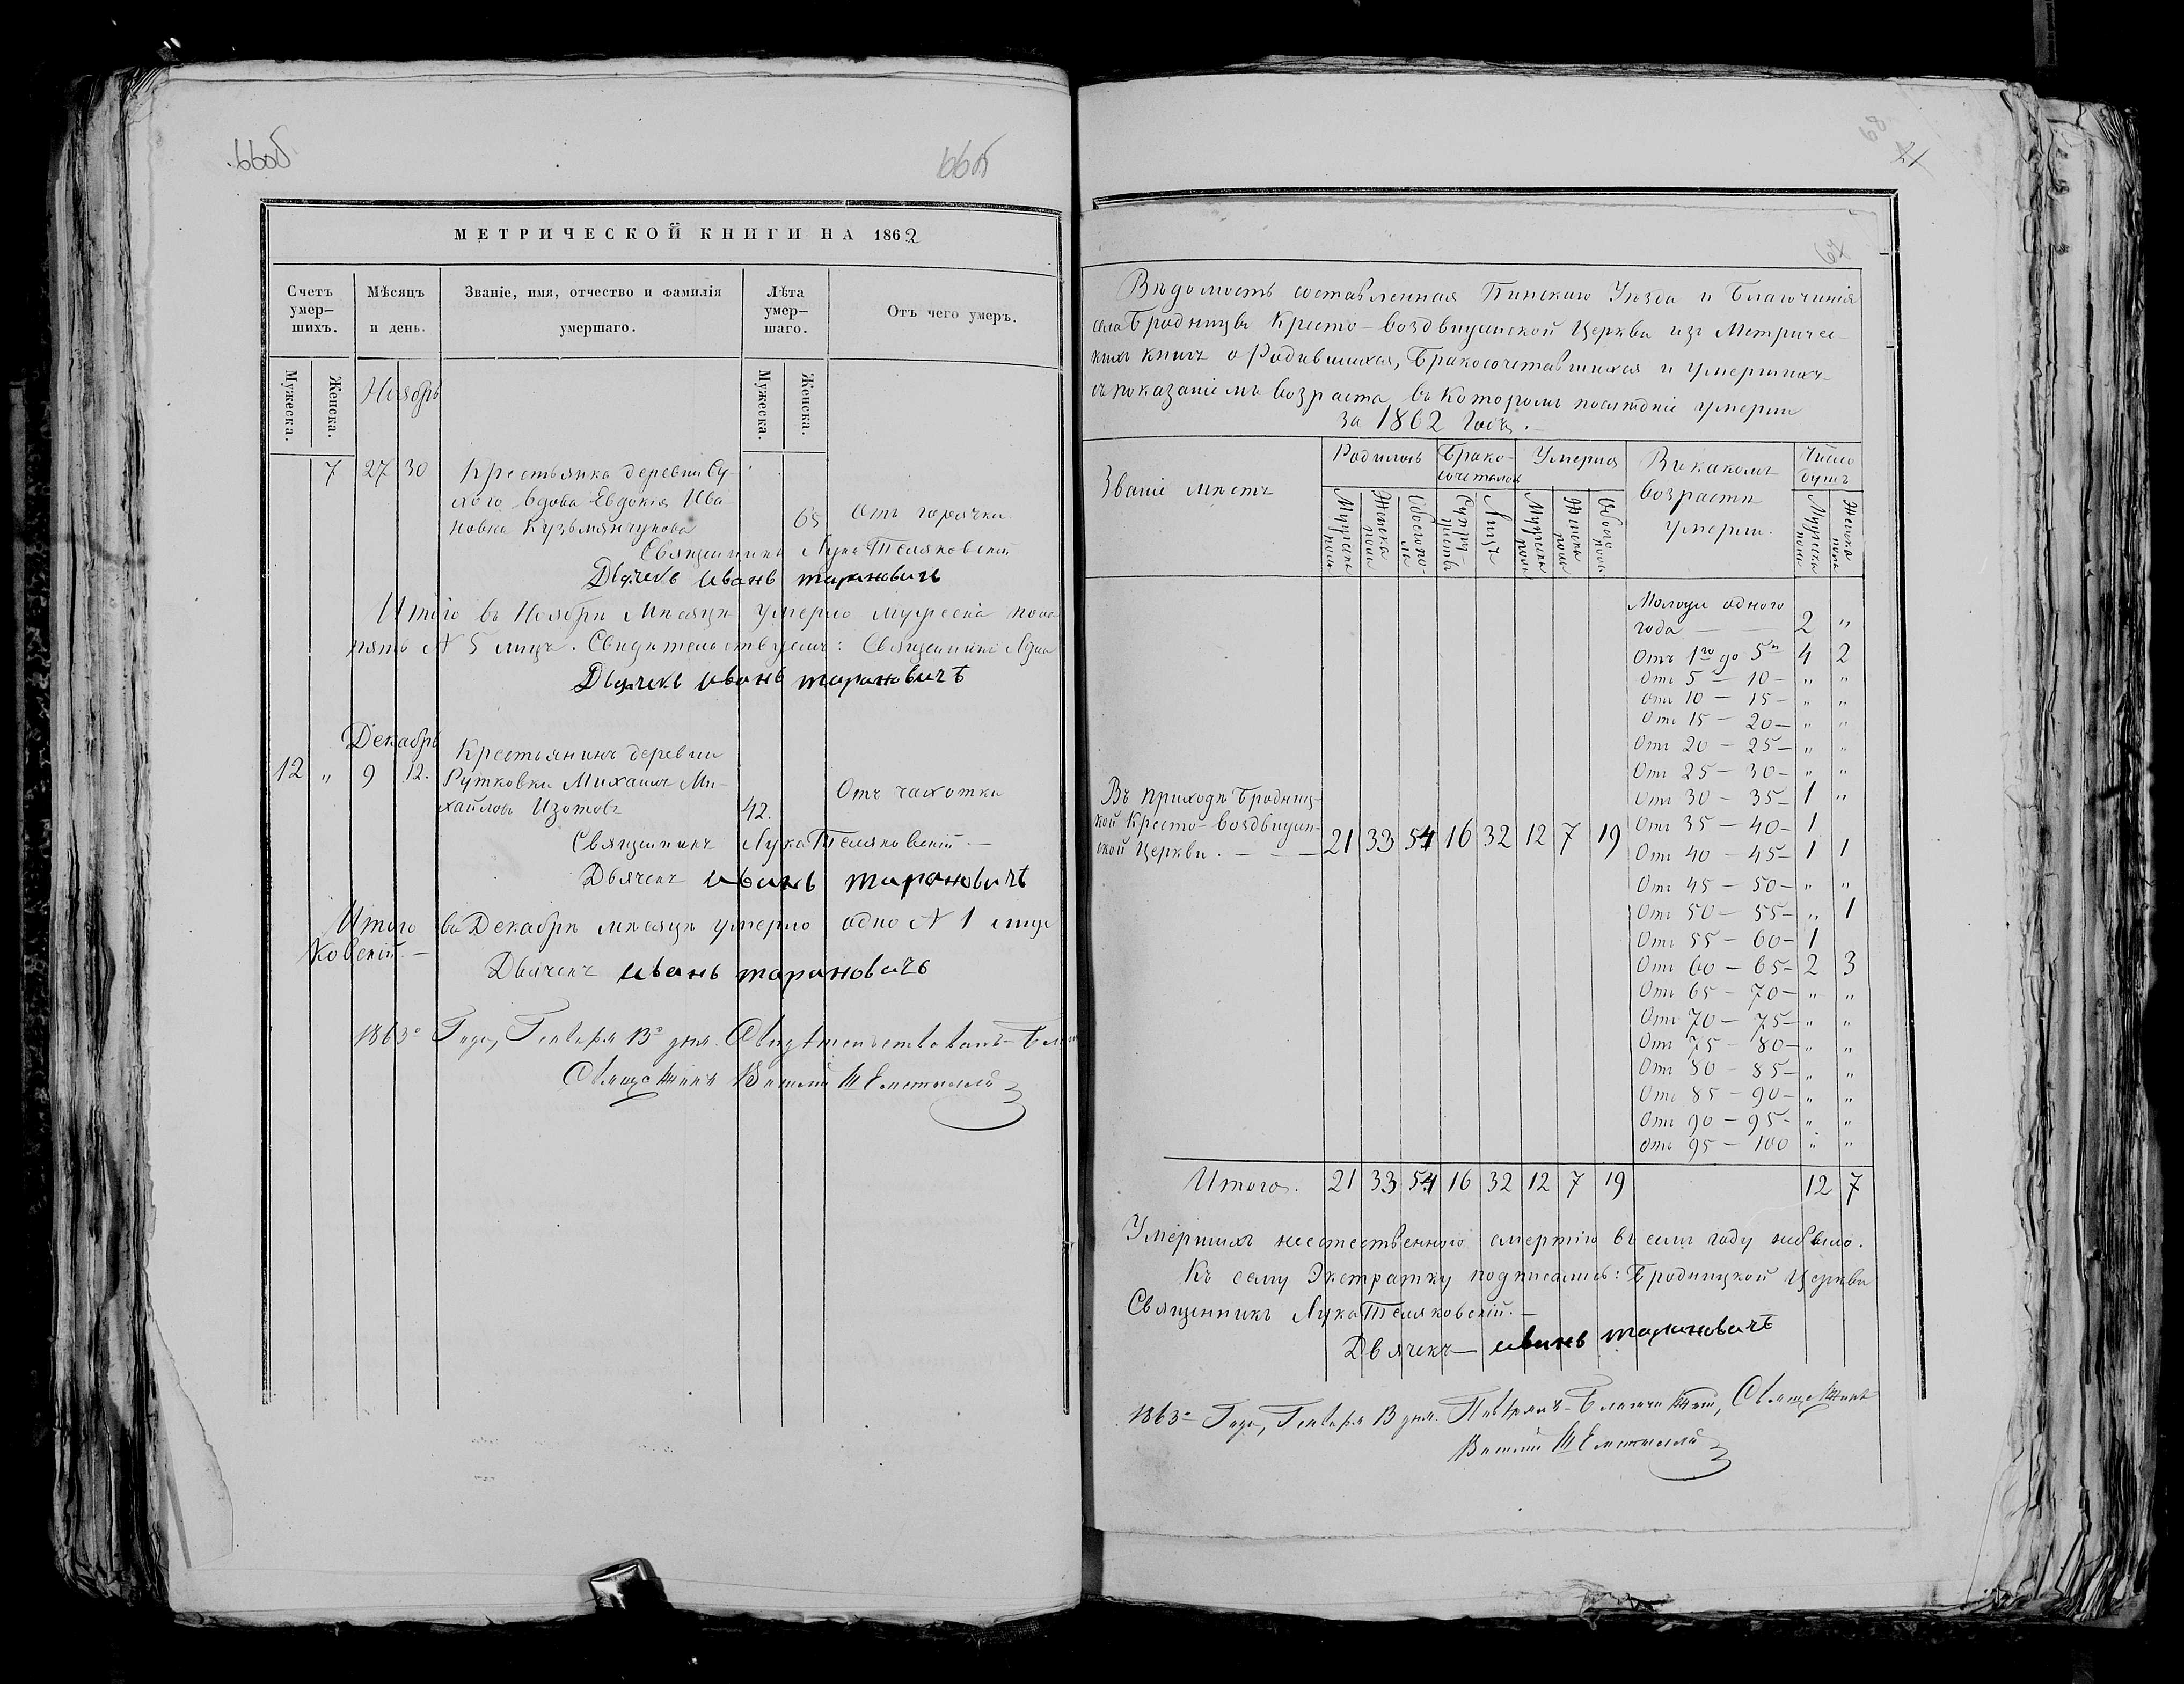 66об.
66об
МЕТРИЧЕСКОЙ КНИГИ НА 1862
Счетъ умер-шихъ.
Мѣсяцъ и день.
Званіе, имя, отчество и фамилія умершаго.
Лѣта умер-шаго.
Отъ чего умеръ.
Мужеска.
Женска.
Мужеска.
Женска.
Ноябрь
7 27 30 Крестьянка деревни Су-
лого вдова Евдокія Ива
новна Кузьмянчукова 65 Отъ горячки
Священникъ Лука Теляковскій
Дьячекъ иванъ тарановичъ
Итого въ Ноябрѣ Мѣсяцѣ умерло мужеска пола
пять N 5 лицъ. Свидѣтельствуемъ: Священникъ Лука
Дьячекъ иванъ тарановичъ
Декабрь
Крестьянинъ деревни
12 " 9 12. Рутковки Михаилъ Ми-
хайловъ Изотовъ 42. Отъ чахотки
Священникъ Лука Теляковскій. —
Дьячекъ иванъ тарановичъ
Итого въ Декабрѣ мѣсяцѣ умерло одно N 1 лице
ковскій. —
Дьячекъ иванъ тарановичъ
1863го Года, Генваря 13 дня. Свидѣтельствовалъ
Священникъ Василій
68
67
Вѣдомость составленная Пинскаго Уѣзда и Благочинія
села Бродницы Кресто-воздвиженской Церкви изъ Метричес-
кихъ книгъ о Родившихся, Бракосочетавшихся и умершихъ
съ показаніемъ возраста въ которомъ послѣдніе умерли
за 1862 годъ. —
Званіе мѣстъ
Родилось
Брако-сочеталось
Умерло
Въ какомъ возрастѣ умерли.
Число душъ
Мужеска пола
Женска пола
Обоего по-ла
Супру-жествъ
Лицъ
Мужеска пола
Женска пола
Обоего пола
Мужеска пола
Женска пола
Моложе одного
года — 2 "
Отъ 1го до 5и 4 2
Отъ 5 — 10 — " "
Отъ 10 — 15 — " "
Отъ 15 — 20 — " "
Отъ 20 — 25 — " "
Отъ 25 — 30 — " "
Отъ 30 — 35 — 1 "
Отъ 35 — 40 — 1
Отъ 40 — 45 — 1 1
Отъ 45 — 50 — " "
Отъ 50 — 55 — " 1
Отъ 55 — 60 — 1
Отъ 60 — 65 — 2 3
Отъ 65 — 70 — " "
Отъ 70 — 75 — " "
Отъ 75 — 80 — " "
Отъ 80 — 85 — " "
Отъ 85 — 90 — " "
Отъ 90 — 95 — " "
Отъ 95 — 100 " "
Въ приходѣ Бродниц-
кой Кресто-воздвижен-
ской Церкви. — — — 21 33 54 16 32 12 7 19
Итого. 21 33 54 16 32 12 7 19 12 7
Умершихъ неестественною смертію въ семъ году небыло.
Къ сему Экстракту подписались: Бродницкой Церкви
Священникъ Лука Теляковскій. —
Дьячекъ — иванъ тарановичъ
1863го Года, Генваря 13 дня. Повѣрялъ — Благочинный, Священникъ
Василій